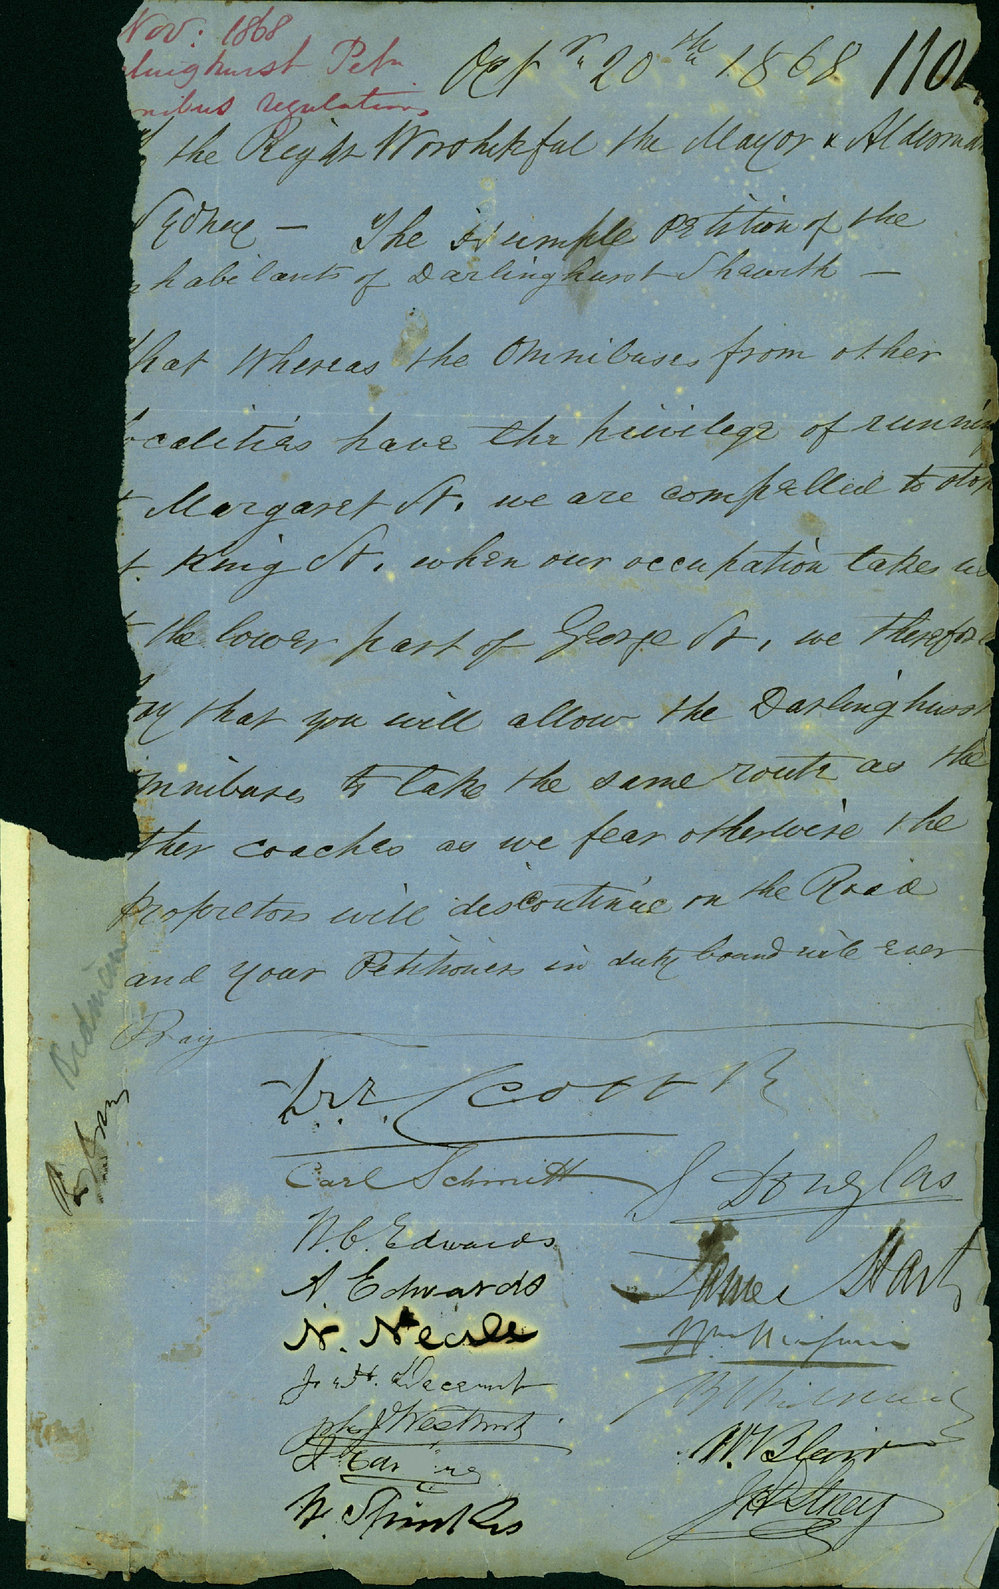 Nov: 1868
linghurst Petn
nibus regulations
Octr 20th 1868 110
the Right Worshipful the Mayor & Alderman
Sydney — The Humple Petition of the
habitants of Darlinghurst Sheweth —
that Whereas the Omnibuses from other
localities have the privilege of runnin
t Margaret St. we are compelled to stop
t King St. when our occupation takes us
the lower part of George St, we therefore
ay that you will allow the Darlinghurst
mnibuses to take the same route as the
ther coaches as we fear otherwise the
propretors will discontinue on the Road
and your Petitioners in duty bound will ever
Pray
Scott
Carl Schmitt
J Douglas
W. C. Edwards
A. Edwards
James Hart
N. Neale
W. Spinks
W. Blair